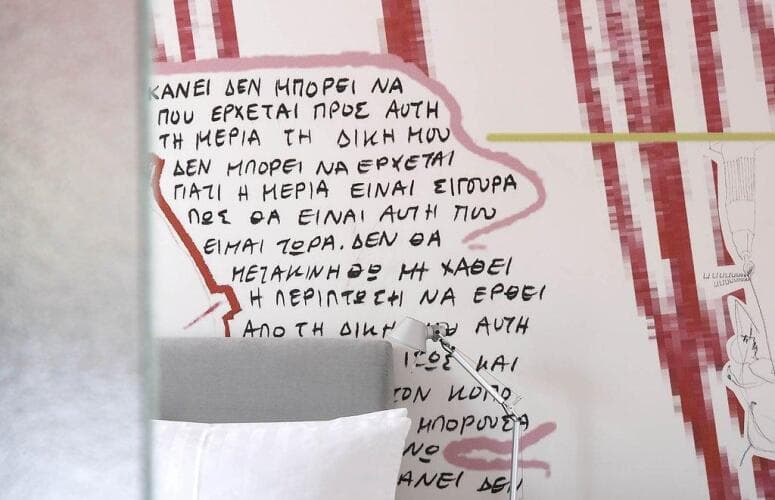 ΚΑΝΕΙ ΔΕΝ ΜΠΟΡΕΙ ΝΑ
ΠΟΥ ΕΡΧΕΤΑΙ ΠΡΟΣ ΑΥΤΗ
ΤΗ ΜΕΡΙΑ ΤΗ ΔΙΚΗ ΜΟΥ
ΔΕΝ ΜΠΟΡΕΙ ΝΑ ΕΡΧΕΤΑΙ
ΓΙΑΤΙ Η ΜΕΡΙΑ ΕΙΝΑΙ ΣΙΓΟΥΡΑ
ΠΩΣ ΘΑ ΕΙΝΑΙ ΑΥΤΗ ΠΟΥ
ΕΙΜΑΙ ΤΩΡΑ. ΔΕΝ ΘΑ
ΜΕΤΑΚΙΝΗΘΩ ΜΗ ΧΑΘΕΙ
Η ΠΕΡΙΠΤΩΣΗ ΝΑ ΕΡΘΕΙ
ΑΠΟ ΤΗ ΔΙΚΗ ΑΥΤΗ
ΚΑΙ
ΤΟΝ ΚΟΠΟ
ΜΠΟΡΟΥΣΑ
ΝΩ
ΚΑΝΕΙ ΔΕΝ